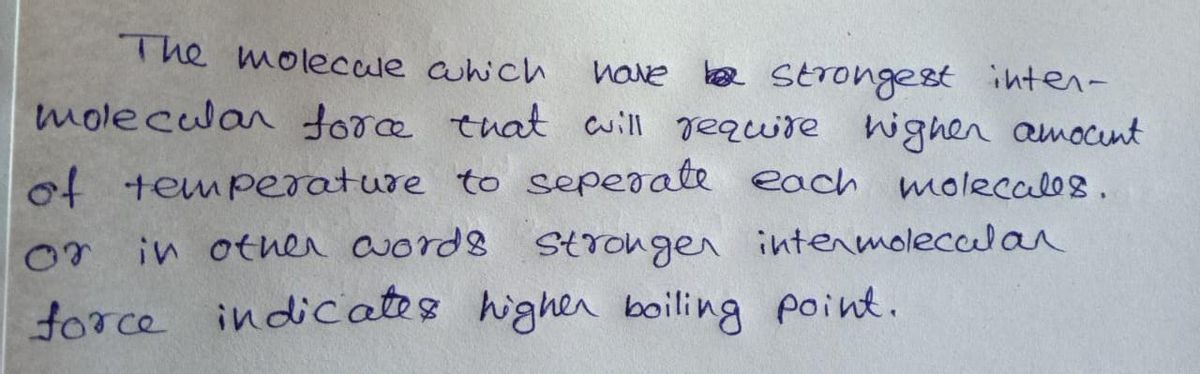 The molecule which have strongest inter-
molecular force that will require higher amount
of temperature to seperate each molecules.
or in other words stronger intermolecular
force indicates higher boiling point.